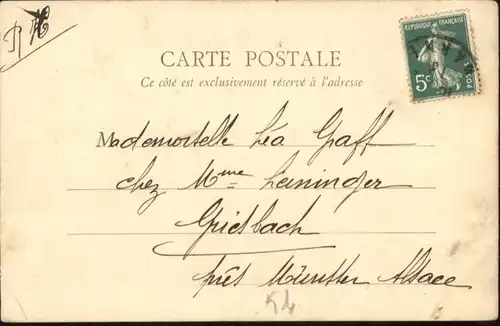 RÉPUBLIQUE FRANÇAISE
5c
POSTES
CARTE POSTALE
Ce côté est exclusivement réservé à l'adresse
Mademoiselle Léa Graff
chez Mme Leininger
Griesbach
près Münster Alsace